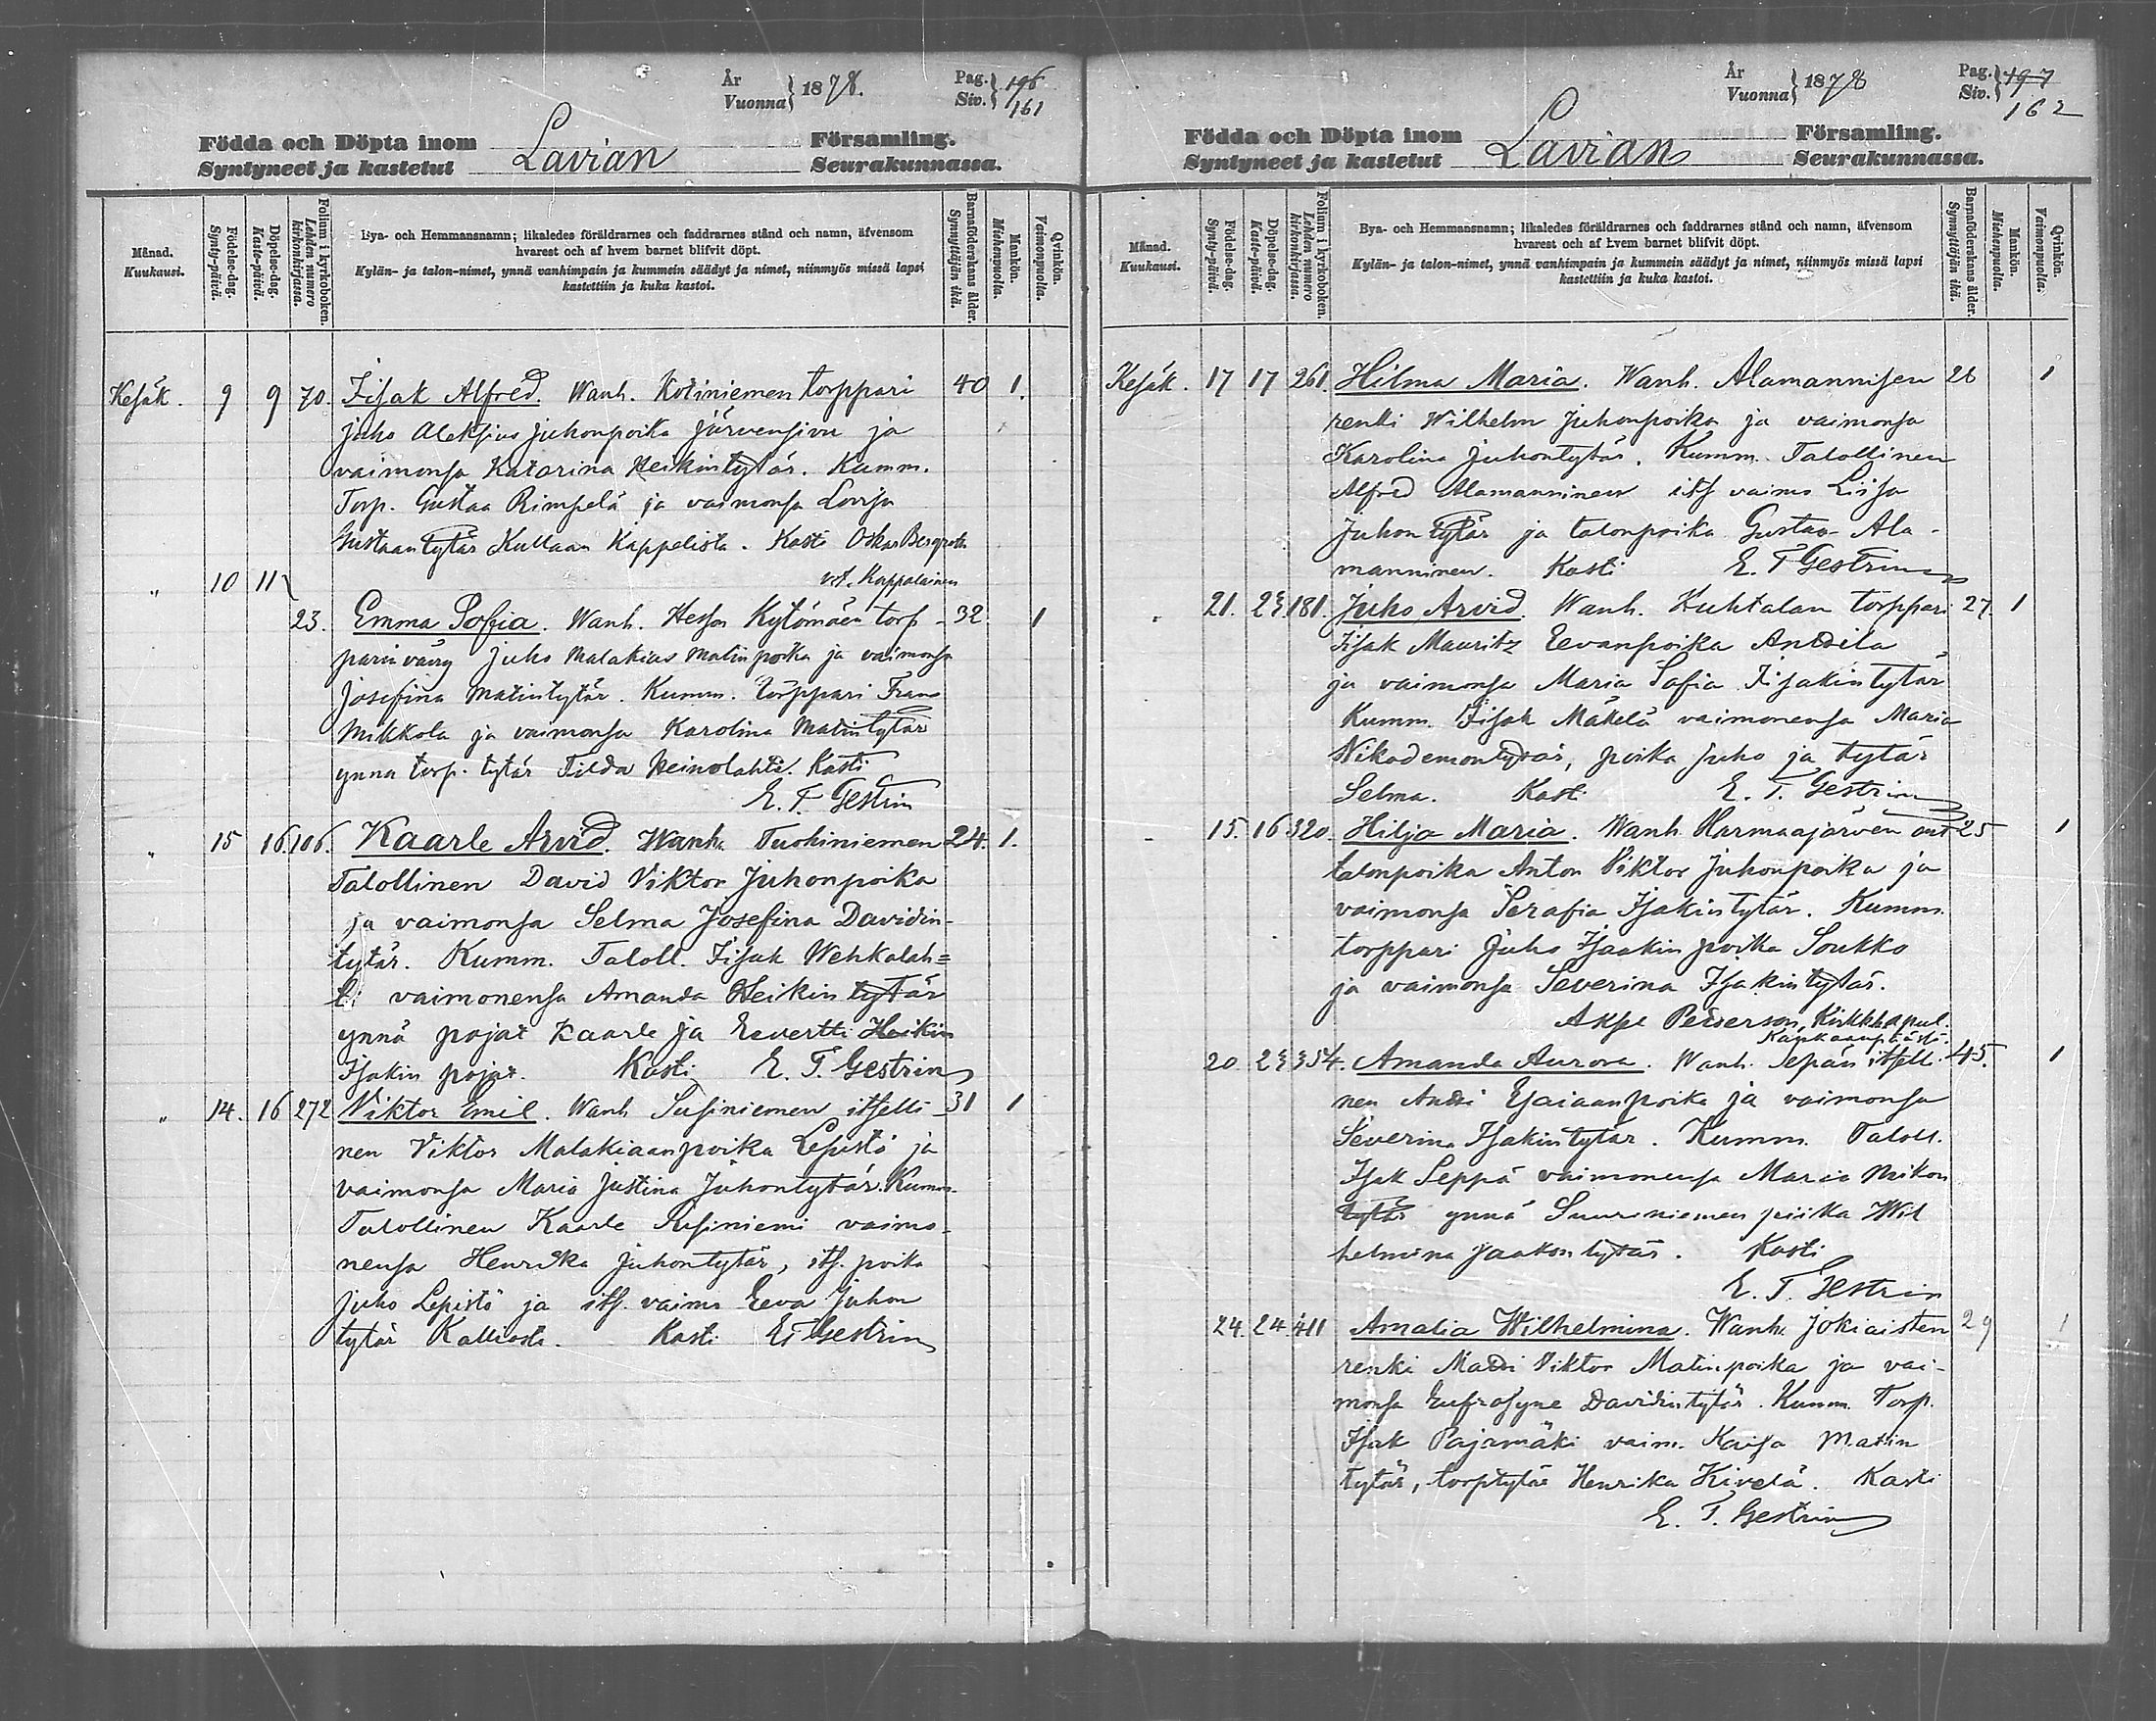 År
Vuonna } 1878.
Pag.
Siv. } 196
161
Födda och Döpta inom
Syntyneet ja kastetut
Lavian
Församling.
Seurakunnassa.
Månad.
Kuukausi.
Födelse-dag.
Synty-päivä.
Döpelse-dag.
Kaste-päivä.
Folium i kyrkoboken.
Lehden numero
kirkonkirjassa.
Bya- och Hemmansnamn; likaledes föräldrarnes och faddrarnes stånd och namn, äfvensom
hvarest och af hvem barnet blifvit döpt.
Kylän- ja talon-nimet, ynnä vanhimpain ja kummein säädyt ja nimet, niinmyös missä lapsi
kastettiin ja kuka kastoi.
Barnaföderskans ålder.
Synnyttäjän ikä.
Mankön.
Miehenpuolta.
Qvinkön.
Vaimonpuolta.
Kesäk. 9 9 70. Iisak Alfred. Wanh. Kotiniemen torppari 40 1.
Juho Aleksius Juhonpoika Järvensivu ja
vaimonsa Katarina Heikintytär. Kumm.
Torp. Gustaa Rimpelä ja vaimonsa Lovisa
Gustaantytär Kullaan Kappelista. Kasti Oskar Bergroth
v.t. Kappalainen
" 10 11
23. Emma Sofia. Wanh. Hesson Kytömäen torp- 32. 1
parin vävy Juho Malakias Matinpoika ja vaimonsa
Josefina Matintytär. Kumm. torppari Frans
Mikkola ja vaimonsa Karolina Matintytär
ynna torp. tytär Tilda Heinolahti. Kasti
E. F. Gestrin
" 15 16. 106. Kaarle Arvid. Wanh. Tuohiniemen 24. 1.
Talollinen David Viktor Juhonpoika
ja vaimonsa Selma Josefina Davidin-
tytär. Kumm. Taloll. Iisak Wehkalah=
ti vaimonensa Amanda Heikintytär
ynnä pojat Kaarle ja Eevertti Heikin
Isakin pojat. Kasti E. F. Gestrin
" 14. 16 272 Viktor Emil. Wanh. Susiniemen itselli- 31 1
nen Viktor Malakiaanpoika Lepistö ja
vaimonsa Maria Justina Juhontytär. Kumm.
Talollinen Kaarle Susiniemi vaimo-
nensa Henrika Juhontytär, its. poika
Juho Lepistö ja its. vaimo Eeva Juhon
tytär Kalliosta. Kasti E F Gestrin
År
Vuonna } 1878
Pag.
Siv. } 197
162
Födda och Döpta inom
Syntyneet ja kastetut
Lavian
Församling.
Seurakunnassa.
Månad.
Kuukausi.
Födelse-dag.
Synty-päivä.
Döpelse-dag.
Kaste-päivä.
Folium i kyrkoboken.
Lehden numero
kirkonkirjassa.
Bya- och Hemmansnamn; likaledes föräldrarnes och faddrarnes stånd och namn, äfvensom
hvarest och af hvem barnet blifvit döpt.
Kylän- ja talon-nimet, ynnä vanhimpain ja kummein säädyt ja nimet, niinmyös missä lapsi
kastettiin ja kuka kastoi.
Barnaföderskans ålder.
Synnyttäjän ikä.
Mankön.
Miehenpuolta.
Qvinkön.
Vaimonpuolta.
Kesäk. 17 17 261. Hilma Maria. Wanh. Alamannisen 28 1
renki Wilhelm Juhonpoika ja vaimonsa
Karolina Juhontytär. Kumm. Talollinen
Alfred Alamanninen its vaimo Liisa
Juhontytär ja talonpoika Gustav Ala-
manninen. Kasti E. F Gestrin
" 21. 23. 181. Juho Arvid. Wanh. Kuhtalan torppari 27. 1
Iisak Mauritz Eevanpoika Anttila
ja vaimonsa Maria Sofia Iisakintytär
Kumm. Iisak Mäkelä vaimonensa Maria
Nikodemontytär, poika Juho ja tytär
Selma. Kasti E. F. Gestrin
" 15. 16 320. Hilja Maria. Wanh. Harmaajärven 25 1
talonpoika Anton Viktor Juhonpoika ja
vaimonsa Serafia Isakintytär. Kumm.
torppari Juho Isaakin poika Soukko
ja vaimonsa Severina Isakintytär.
Peterson, Kirkkhapul.
Kankaanpäästä.
20 23 354. Amanda Aurora. Wanh. Sepän itselli- 45. 1
nen Antti Esaiaanpoika ja vaimonsa
Severina Isakintytär. Kumm. Taloll.
Isak Seppä vaimonensa Maria Mikon
tytär ynnä Suuriniemen piika Wil
helmina Jaakontytär. Kasti
E. F. Gestrin
24. 24 411 Amalia Wilhelmina. Wanh. Jokiaisten 29 1
renki Matti Viktor Matinpoika ja vai-
monsa Eufrosyne Davidintytär. Kumm. Torp.
Isak Pajamäki vaim. Kaisa Matin
tytär, torptytär Henrika Kivelä. Kasti
E. F. Gestrin